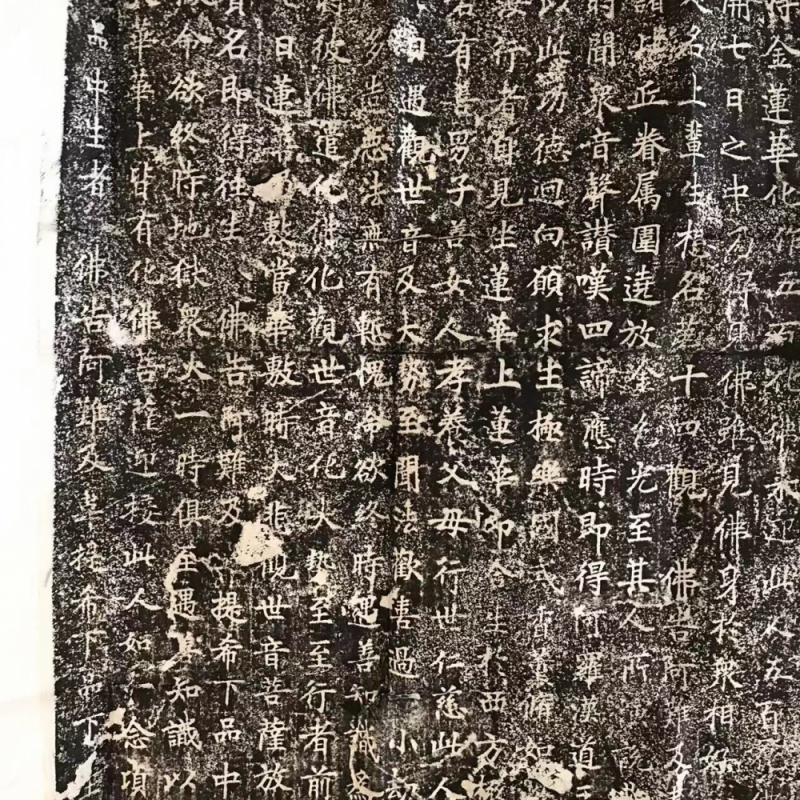 得金蓮華化作五百化佛來迎此人五百
開七日之中乃得見佛雖見佛身於眾相好
人名上輩生想名第十四觀 佛告阿難及
諸比丘眷属圍遶放金色光至其人所演說
時聞眾音聲讃嘆四諦應時即得阿羅漢道三
以此功德迴向願求生極樂國戒香薰脩如
行者自見坐蓮華上蓮華即合生於西方極
若有善男子善女人孝養父母行世仁慈此人
日遇觀世音及大勢至聞法歡喜過一小劫
多造惡法無有慙愧命欲終時遇善知識為
彼佛遣化佛化觀世音化大勢至至行者前
日蓮華乃敷當華敷時大悲觀世音菩薩放
名即得往生 佛告阿難及 提希下品中
命欲終時地獄眾火一時俱至遇善知識以
華華上皆有化佛菩薩迎接此人如一念頃
品中生者 佛告阿難及韋提希下品下生